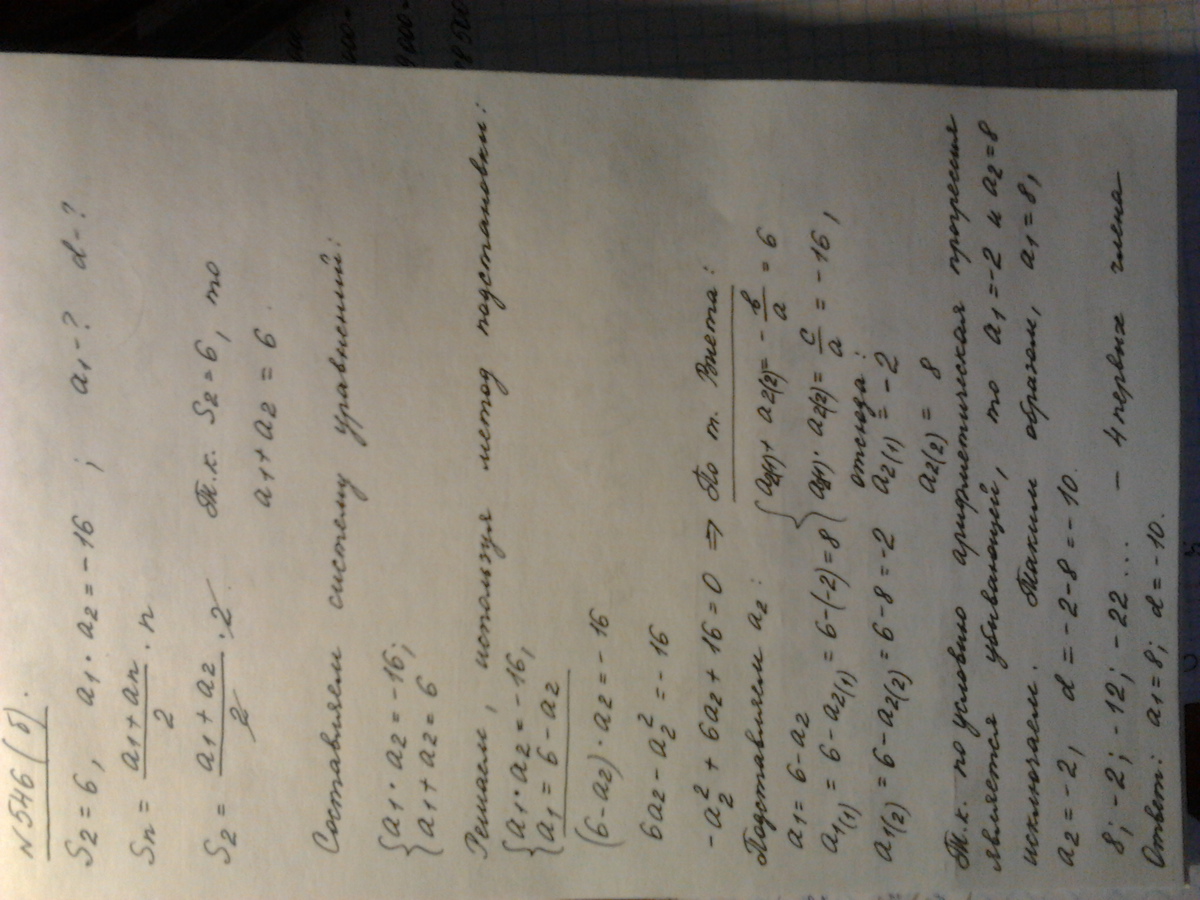 N546 (б).
S2 = 6, a1 · a2 = -16 ; a1 - ? d - ?
Sn = a1 + an / 2 · n
S2 = a1 + a2 / 2 · 2. Т.к. S2 = 6, то
a1 + a2 = 6.
Составляем систему уравнений:
{ a1 · a2 = -16;
{ a1 + a2 = 6
Решаем, используя метод подстановки:
{ a1 · a2 = -16,
{ a1 = 6 - a2
(6 - a2) · a2 = -16
6a2 - a2² = -16
-a2² + 6a2 + 16 = 0 ⇒ По т. Виета:
Подставляем a2: { a2(1) + a2(2) = - b/a = 6
a1 = 6 - a2
a1(1) = 6 - a2(1) = 6 - (-2) = 8 { a2(1) · a2(2) = c/a = -16,
отсюда:
a2(1) = -2
a1(2) = 6 - a2(2) = 6 - 8 = -2
a2(2) = 8
Т.к. по условию арифметическая прогрессия
является убывающей, то a1 = -2 и a2 = 8
исключаем. Таким образом, a1 = 8,
a2 = -2, d = -2 - 8 = -10.
8; -2; -12; -22 ... - 4 первых члена
Ответ: a1 = 8; d = -10.